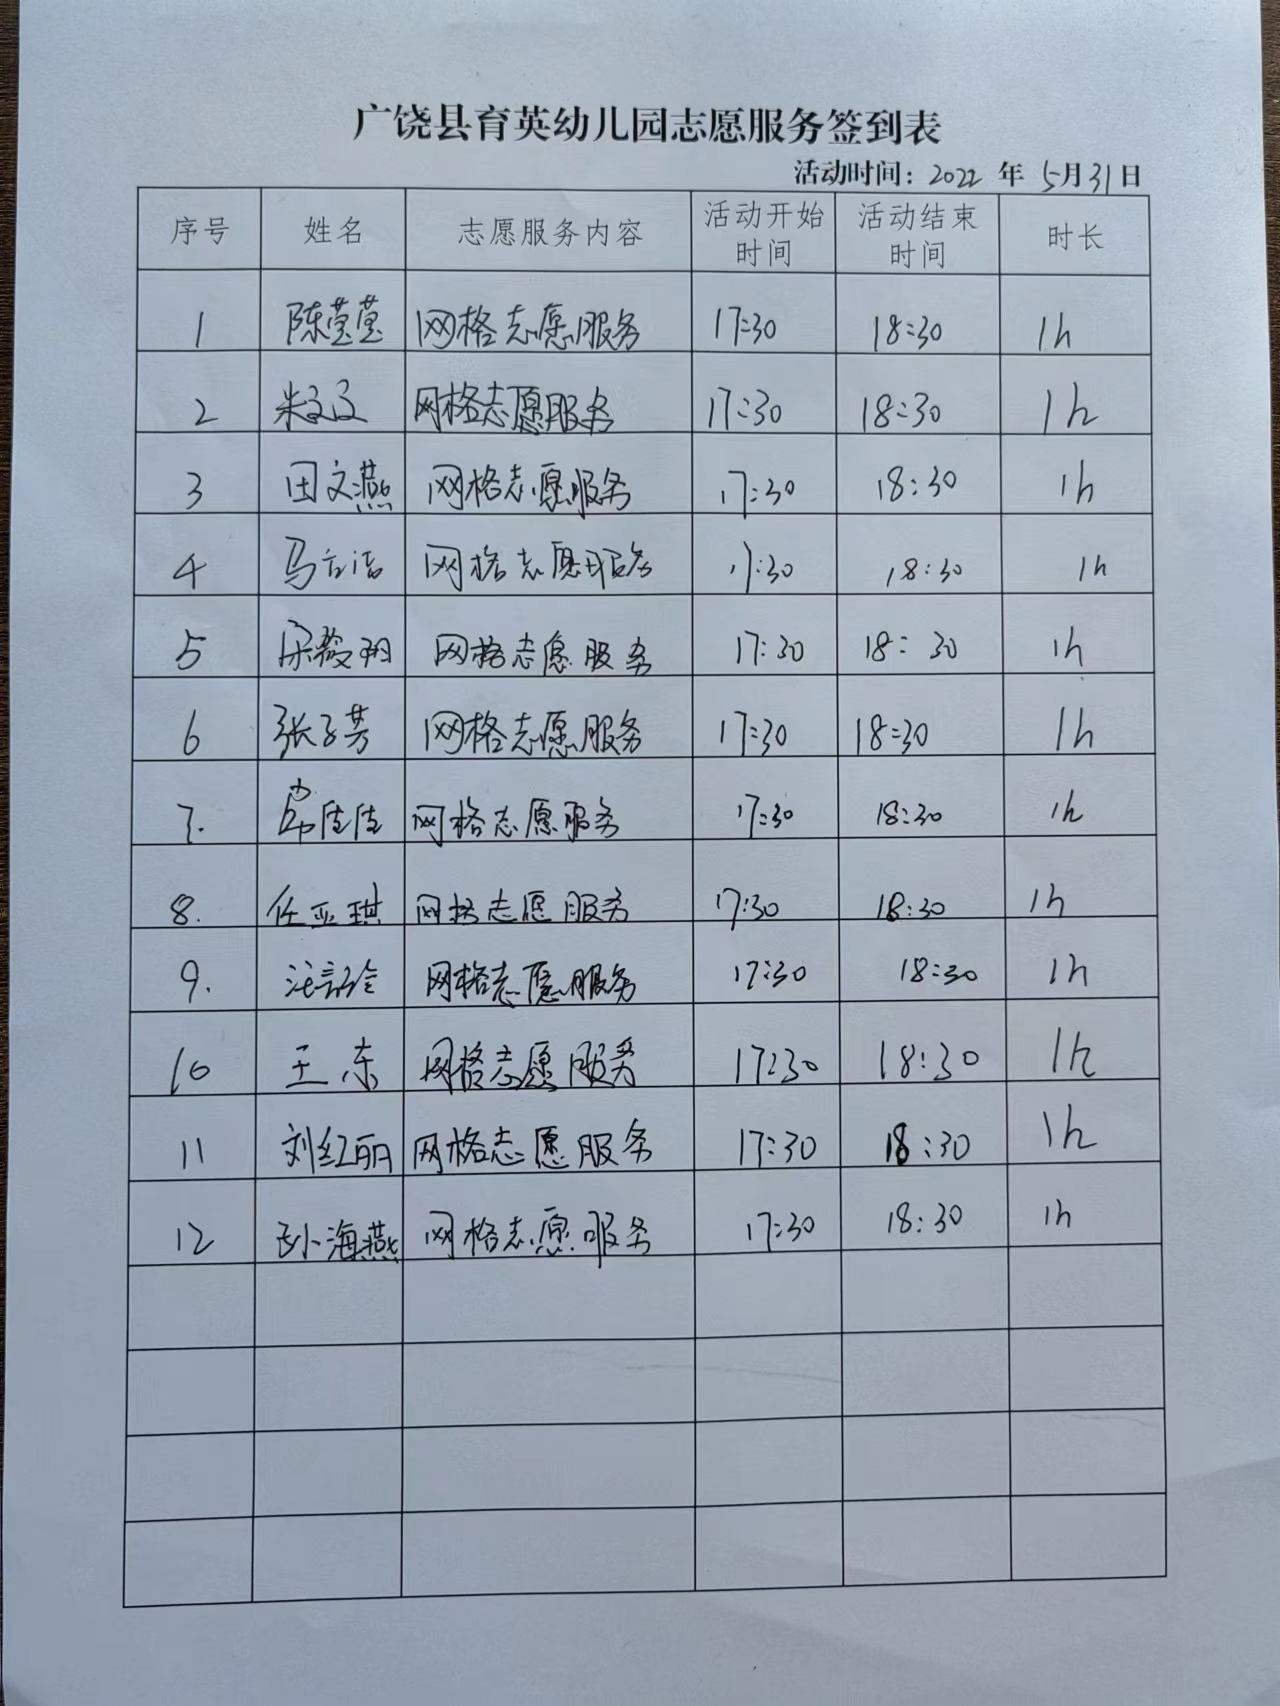 广饶县育英幼儿园志愿服务签到表
活动时间：2022 年 5月31日
序号 姓名 志愿服务内容 活动开始时间 活动结束时间 时长
1 陈莹莹 网格志愿服务 17:30 18:30 1h
2 网格志愿服务 17:30 18:30 1h
3 田文燕 网格志愿服务 17:30 18:30 1h
4 网格志愿服务 17:30 18:30 1h
5 网格志愿服务 17:30 18:30 1h
6 张子芳 网格志愿服务 17:30 18:30 1h
7. 网格志愿服务 17:30 18:30 1h
8. 任亚琪 网格志愿服务 17:30 18:30 1h
9. 网格志愿服务 17:30 18:30 1h
10 王东 网格志愿服务 17:30 18:30 1h
11 刘红丽 网格志愿服务 17:30 18:30 1h
12 孙海燕 网格志愿服务 17:30 18:30 1h